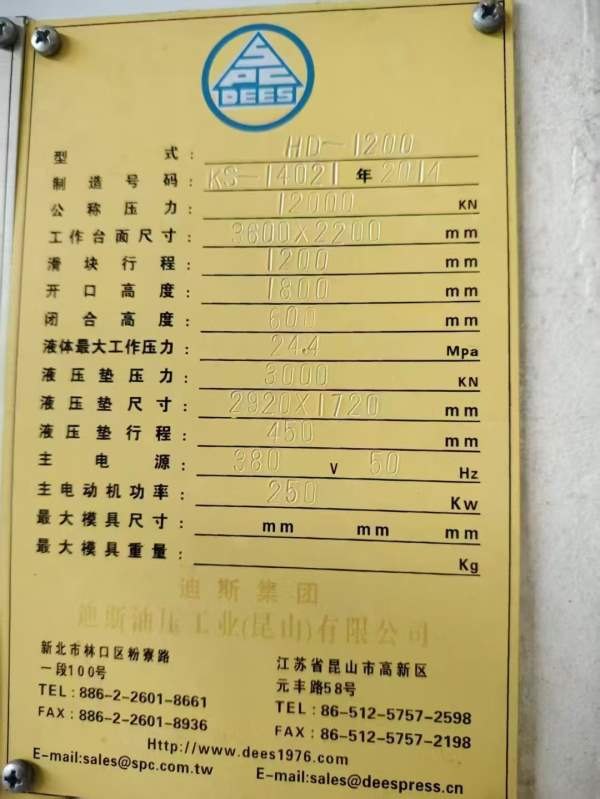 SPC
DEES
型式: HD-1200
制造号码: KS-14021 年 2014
公称压力: 12000 KN
工作台面尺寸: 3600X2200 mm
滑块行程: 1200 mm
开口高度: 1800 mm
闭合高度: 600 mm
液体最大工作压力: 24.4 Mpa
液压垫压力: 3000 KN
液压垫尺寸: 2920X1720 mm
液压垫行程: 450 mm
主电源: 380 V 50 Hz
主电动机功率: 250 Kw
最大模具尺寸: mm mm mm
最大模具重量: Kg
迪斯集团
迪斯油压工业(昆山)有限公司
新北市林口区粉寮路
一段100号
TEL: 886-2-2601-8661
FAX: 886-2-2601-8936
江苏省昆山市高新区
元丰路58号
TEL: 86-512-5757-2598
FAX: 86-512-5757-2198
Http://www.dees1976.com
E-mail:sales@spc.com.tw
E-mail:sales@deespress.cn